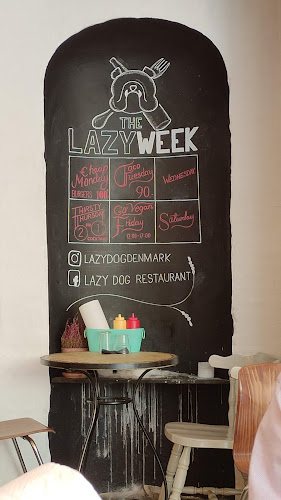 THE
LAZY WEEK
Cheap
Monday
BURGERS 100
Taco
Tuesday
90
WEDNESDAY
THIRSTY
THURSDAY
2 1
COCKTAIL
Go Vegan
Friday
Saturday
LAZYDOGDENMARK
LAZY DOG RESTAURANT